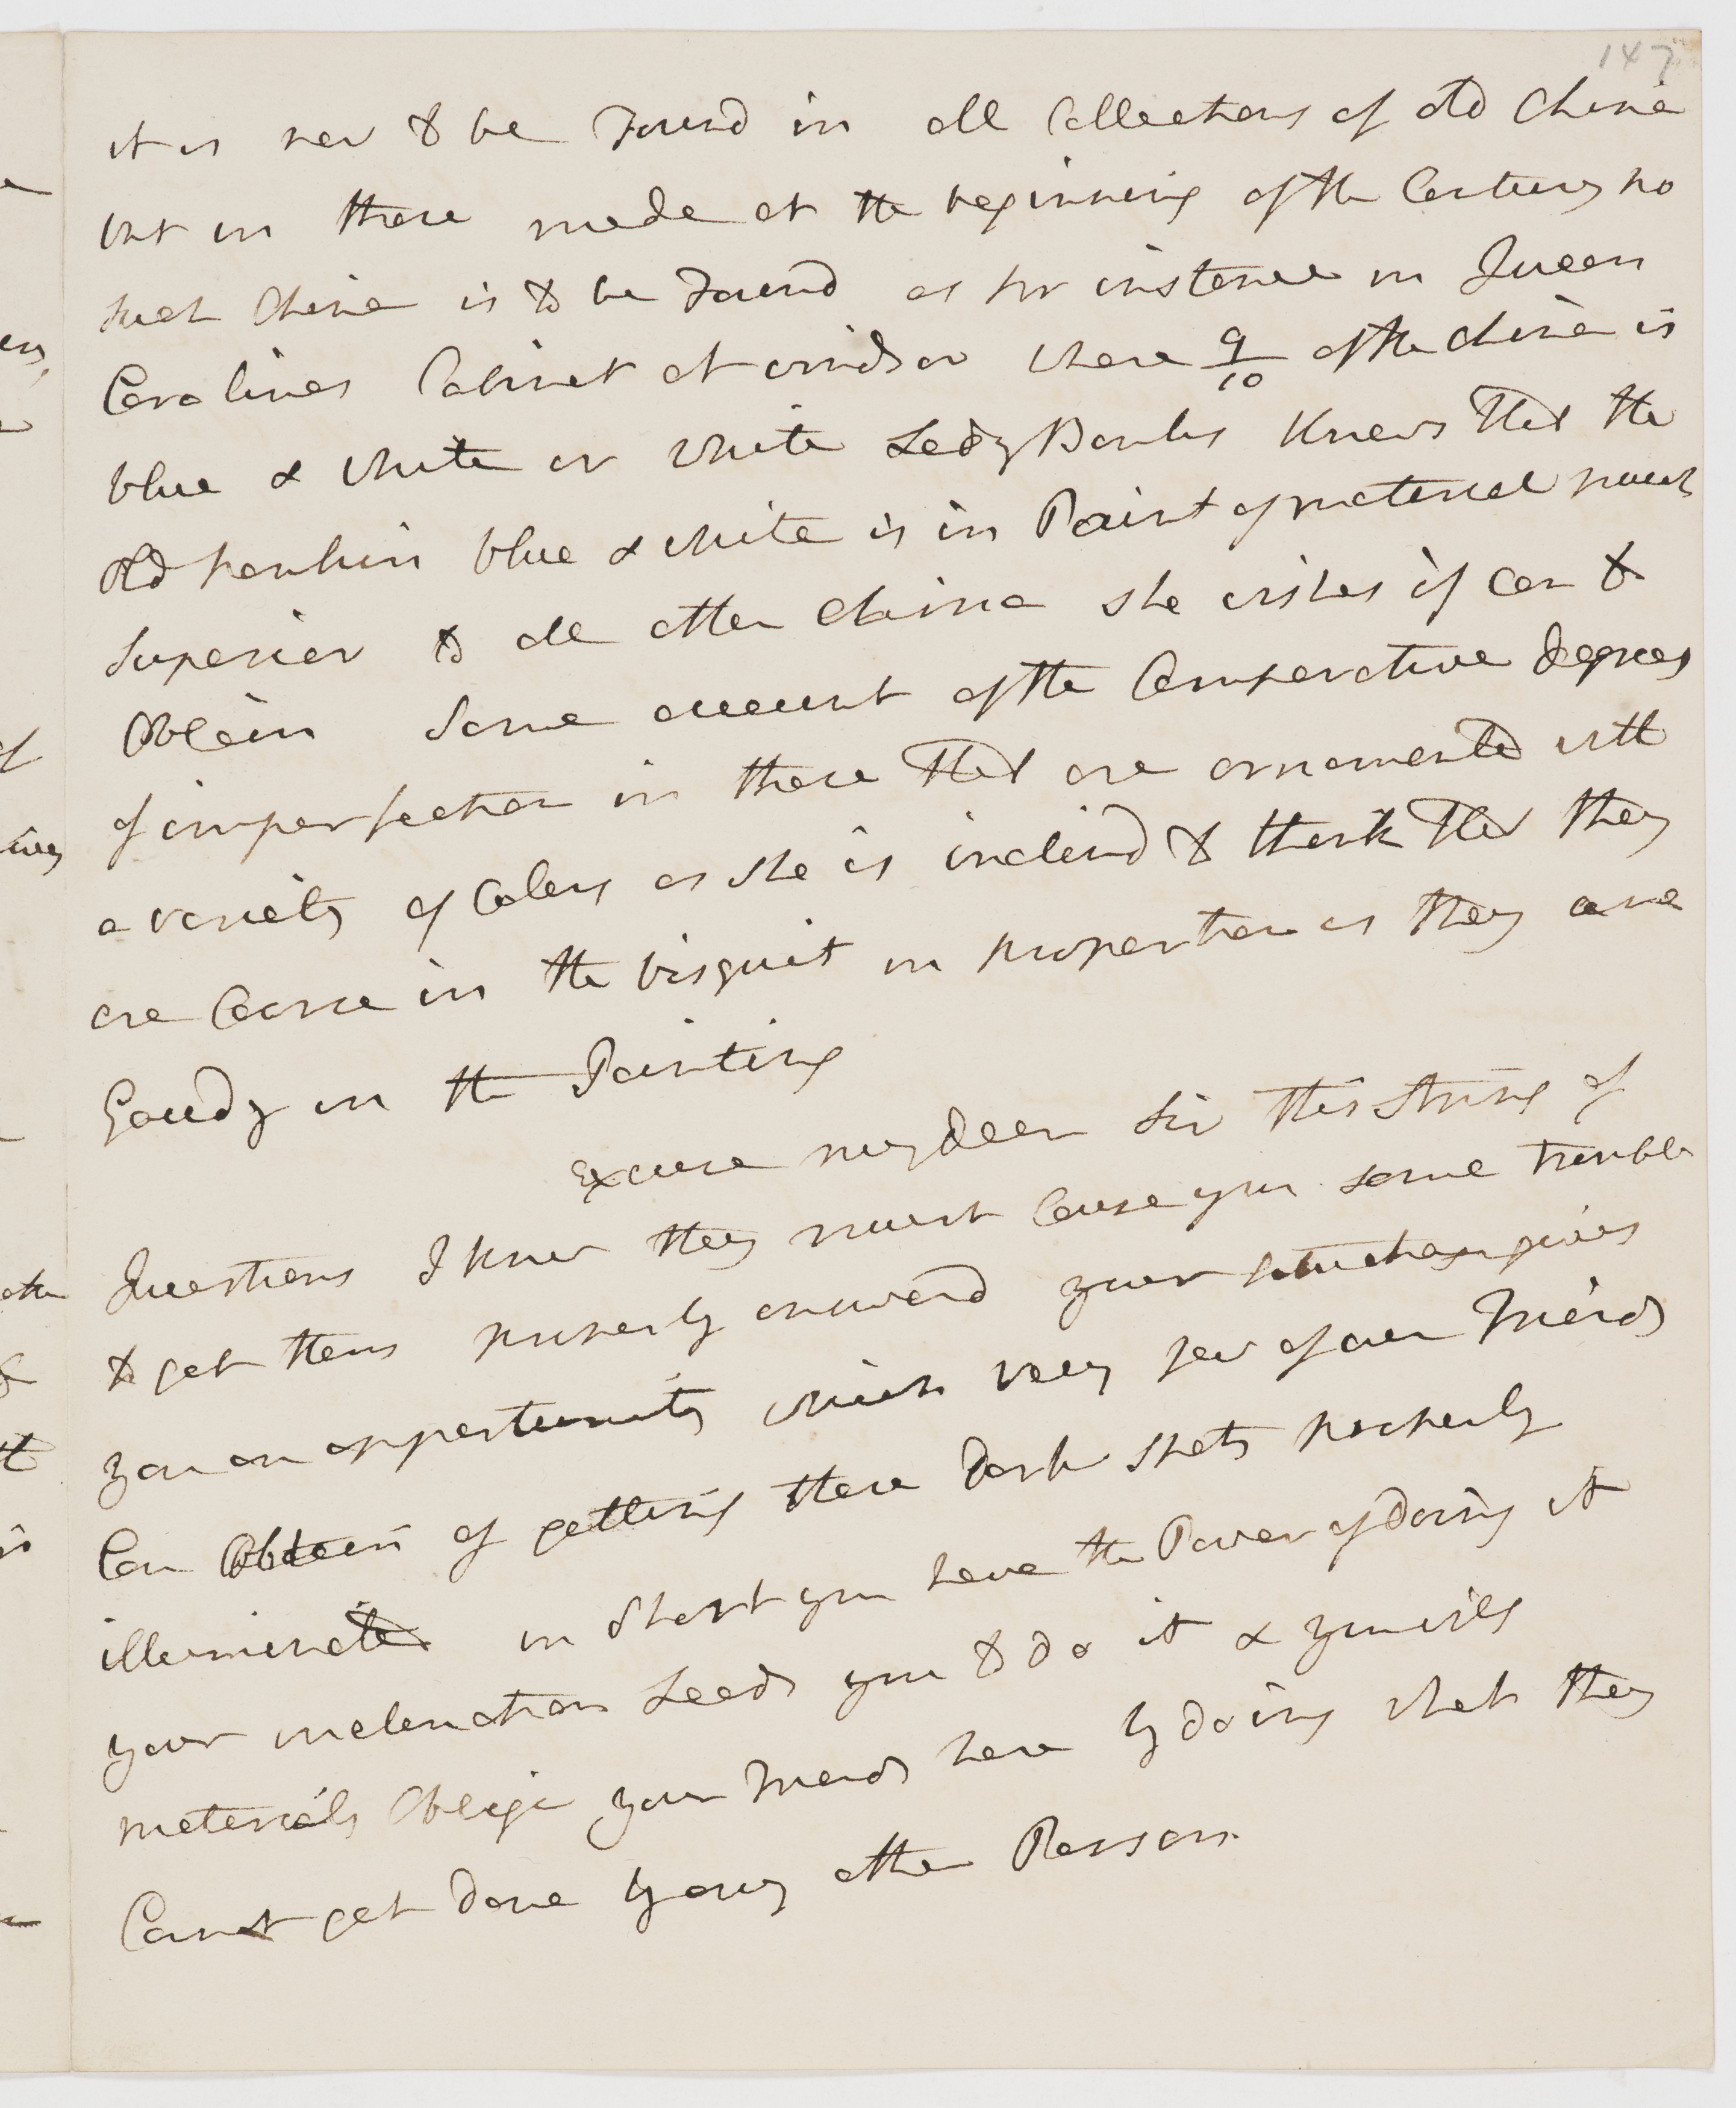 147
it is now to be Found in all Collections of old China
but in those made at the beginning of the Century no
such China is to be Found as for instance in Queen
Carolines Cabinet at windsor where 9/10 of the china is
blue & white or white Lady Banks Knows that the
old nankin blue & white is in Point of material much
superior to all other China she wishes if can to
Obtain some account of the Comparative degrees
of imperfection in those that are ornamented with
a variety of Colors as she is inclind to think that they
are Coarse in the bisquit in proportion as they are
Gaudy in the Painting
Excuse my dear Sir this string of
Questions I know they must Cause you some trouble
to get them properly answerd your situation gives
you an opportunity which very few of our Friends
Can Obtain of getting these dark spots properly
illuminated in short you have the Power of doing it
your inclination Leads you to do it & you will
materialy Oblige your Friends here by doing what they
Cannot get done by any other Person